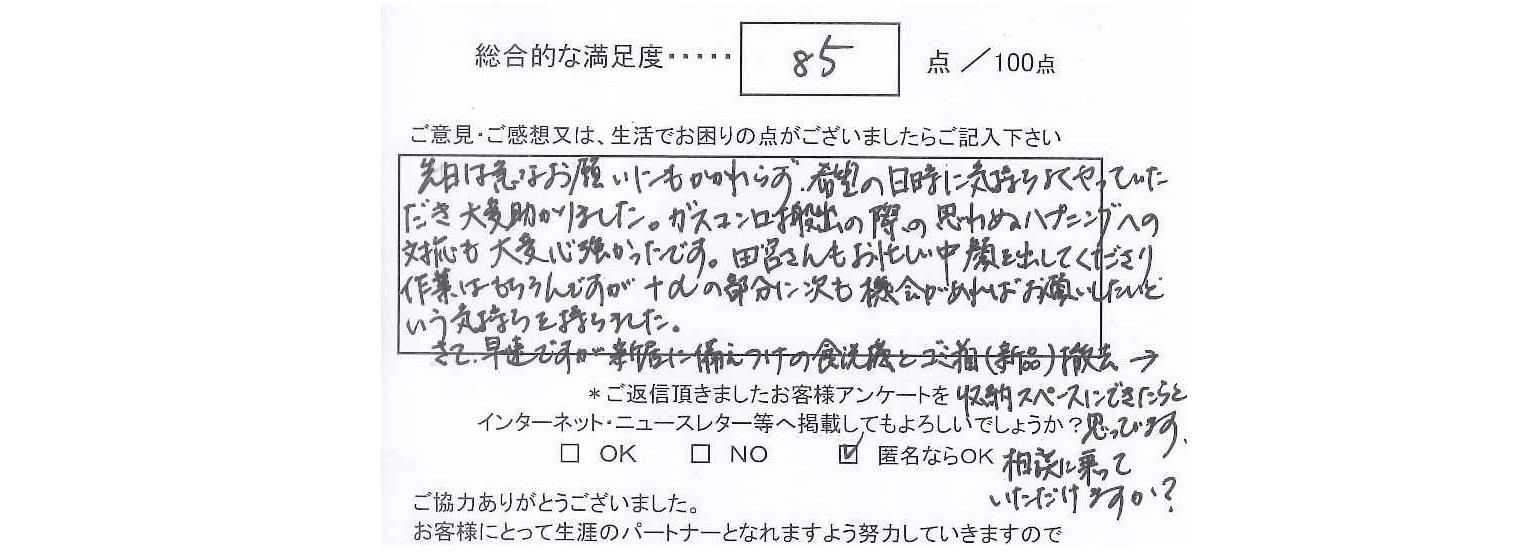 総合的な満足度・・・・・ 85 点 ／100点
ご意見・ご感想又は、生活でお困りの点がございましたらご記入下さい
先日は急なお願いにもかかわらず、希望の日時に気持ちよくやっていた
だき大変助かりました。ガスコンロ搬出の際の思わぬハプニングへの
対応も大変心強かったです。田宮さんもお忙しい中顔を出してくださり
作業はもちろんですが+αの部分に次も機会があればお願いしたいと
いう気持ちを持ちました。
さて、早速ですが新居に備えつけの食洗機とゴミ箱(新品)撤去→
＊ご返信頂きましたお客様アンケートを 収納スペースにできたらと
インターネット・ニュースレター等へ掲載してもよろしいでしょうか？ 思っています、
□ OK □ NO ☑ 匿名ならOK 相談に乗って
いただけますか？
ご協力ありがとうございました。
お客様にとって生涯のパートナーとなれますよう努力していきますので